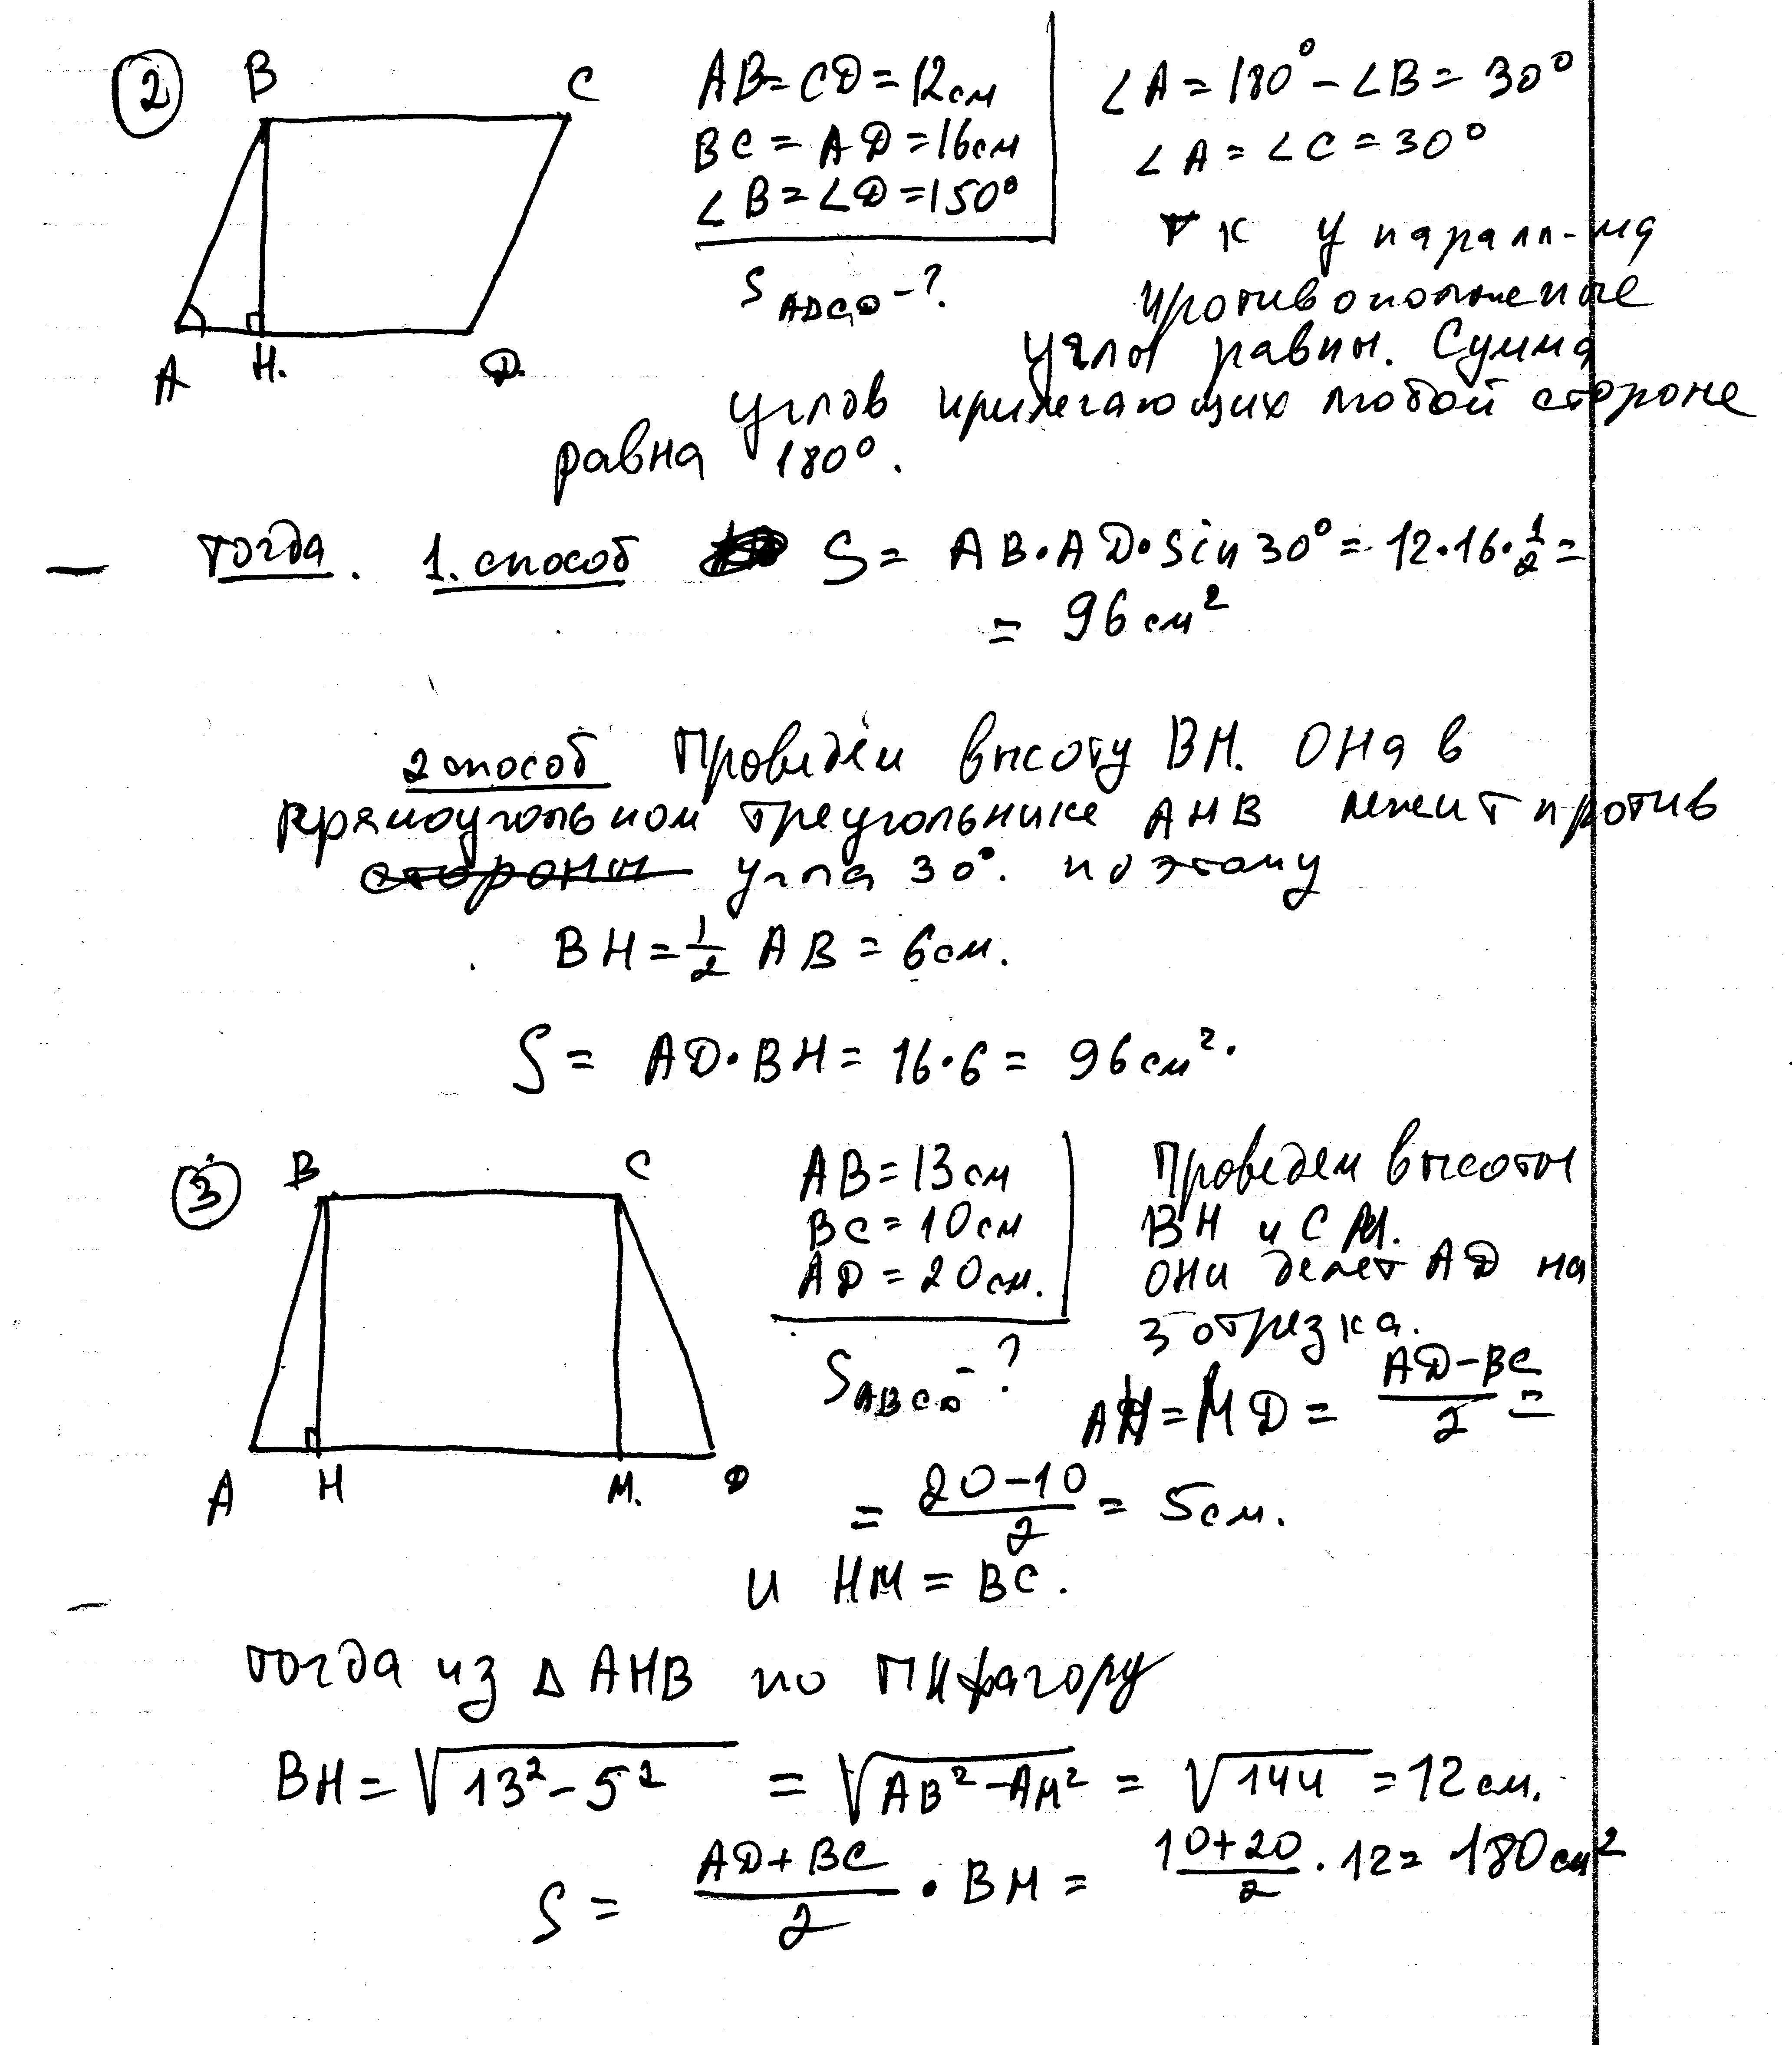 2
B C
A H. D.
AB=CD=12см
BC=AD=16см
∠B=∠D=150°
S ABCD -?
∠A=180°-∠B=30°
∠A=∠C=30°
тк у паралл-ма
противоположные
углы равны. Сумма
углов прилегающих любой стороне
равна 180°.
тогда. 1. способ S= AB·AD·sin30°=12·16·1/2=
= 96см²
2 способ Проведём высоту BH. Она в
прямоугольном треугольнике AHB лежит против
стороны угла 30°. поэтому
BH=1/2 AB=6см.
S= AD·BH=16·6=96см².
3
B C
A H M. D
AB=13см
BC=10см
AD=20см.
S ABCD -?
Проведем высоты
BH и CM.
они делет AD на
3 отрезка.
AH=MD= (AD-BC)/2 =
= (20-10)/2 = 5см.
и HM=BC.
тогда из △AHB по Пифагору
BH=√(13²-5²) = √(AB²-AH²) = √144 =12см.
S= (AD+BC)/2 · BH= (10+20)/2 ·12= 180см²